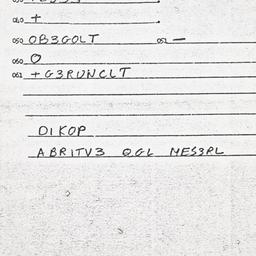 040 +
050 OB3GOLT 052 —
060 O
061 +G3RUNCLT
DIKOP
ABRITV3 QGL MES3RL